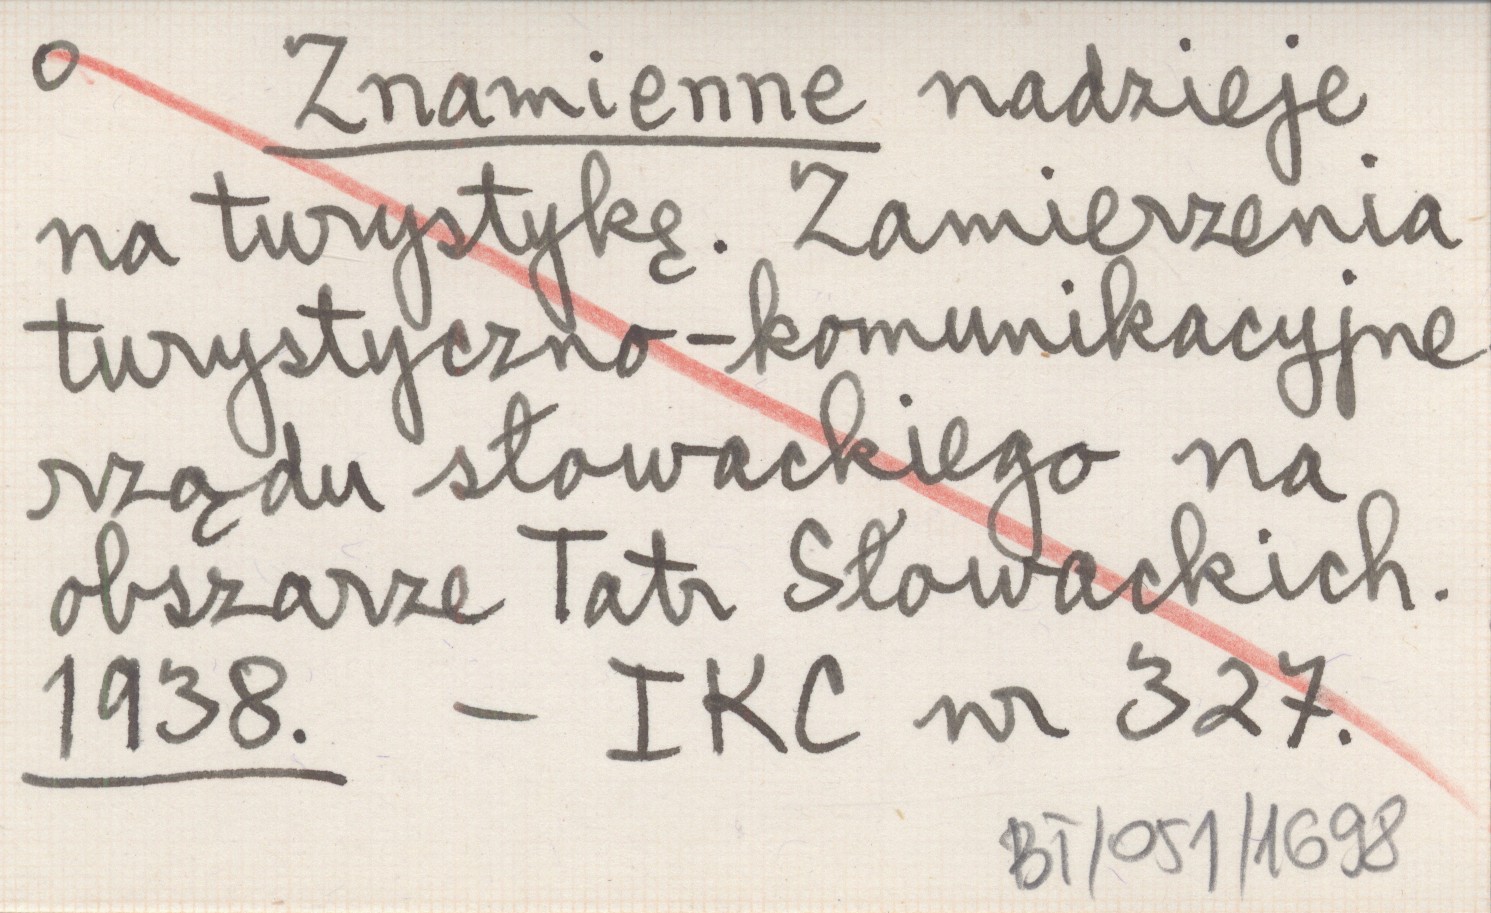 o Znamienne nadzieje
na turystykę. Zamierzenia
turystyczno-komunikacyjne
rządu słowackiego na
obszarze Tatr Słowackich.
1938. - IKC nr 327.
BT/051/1698